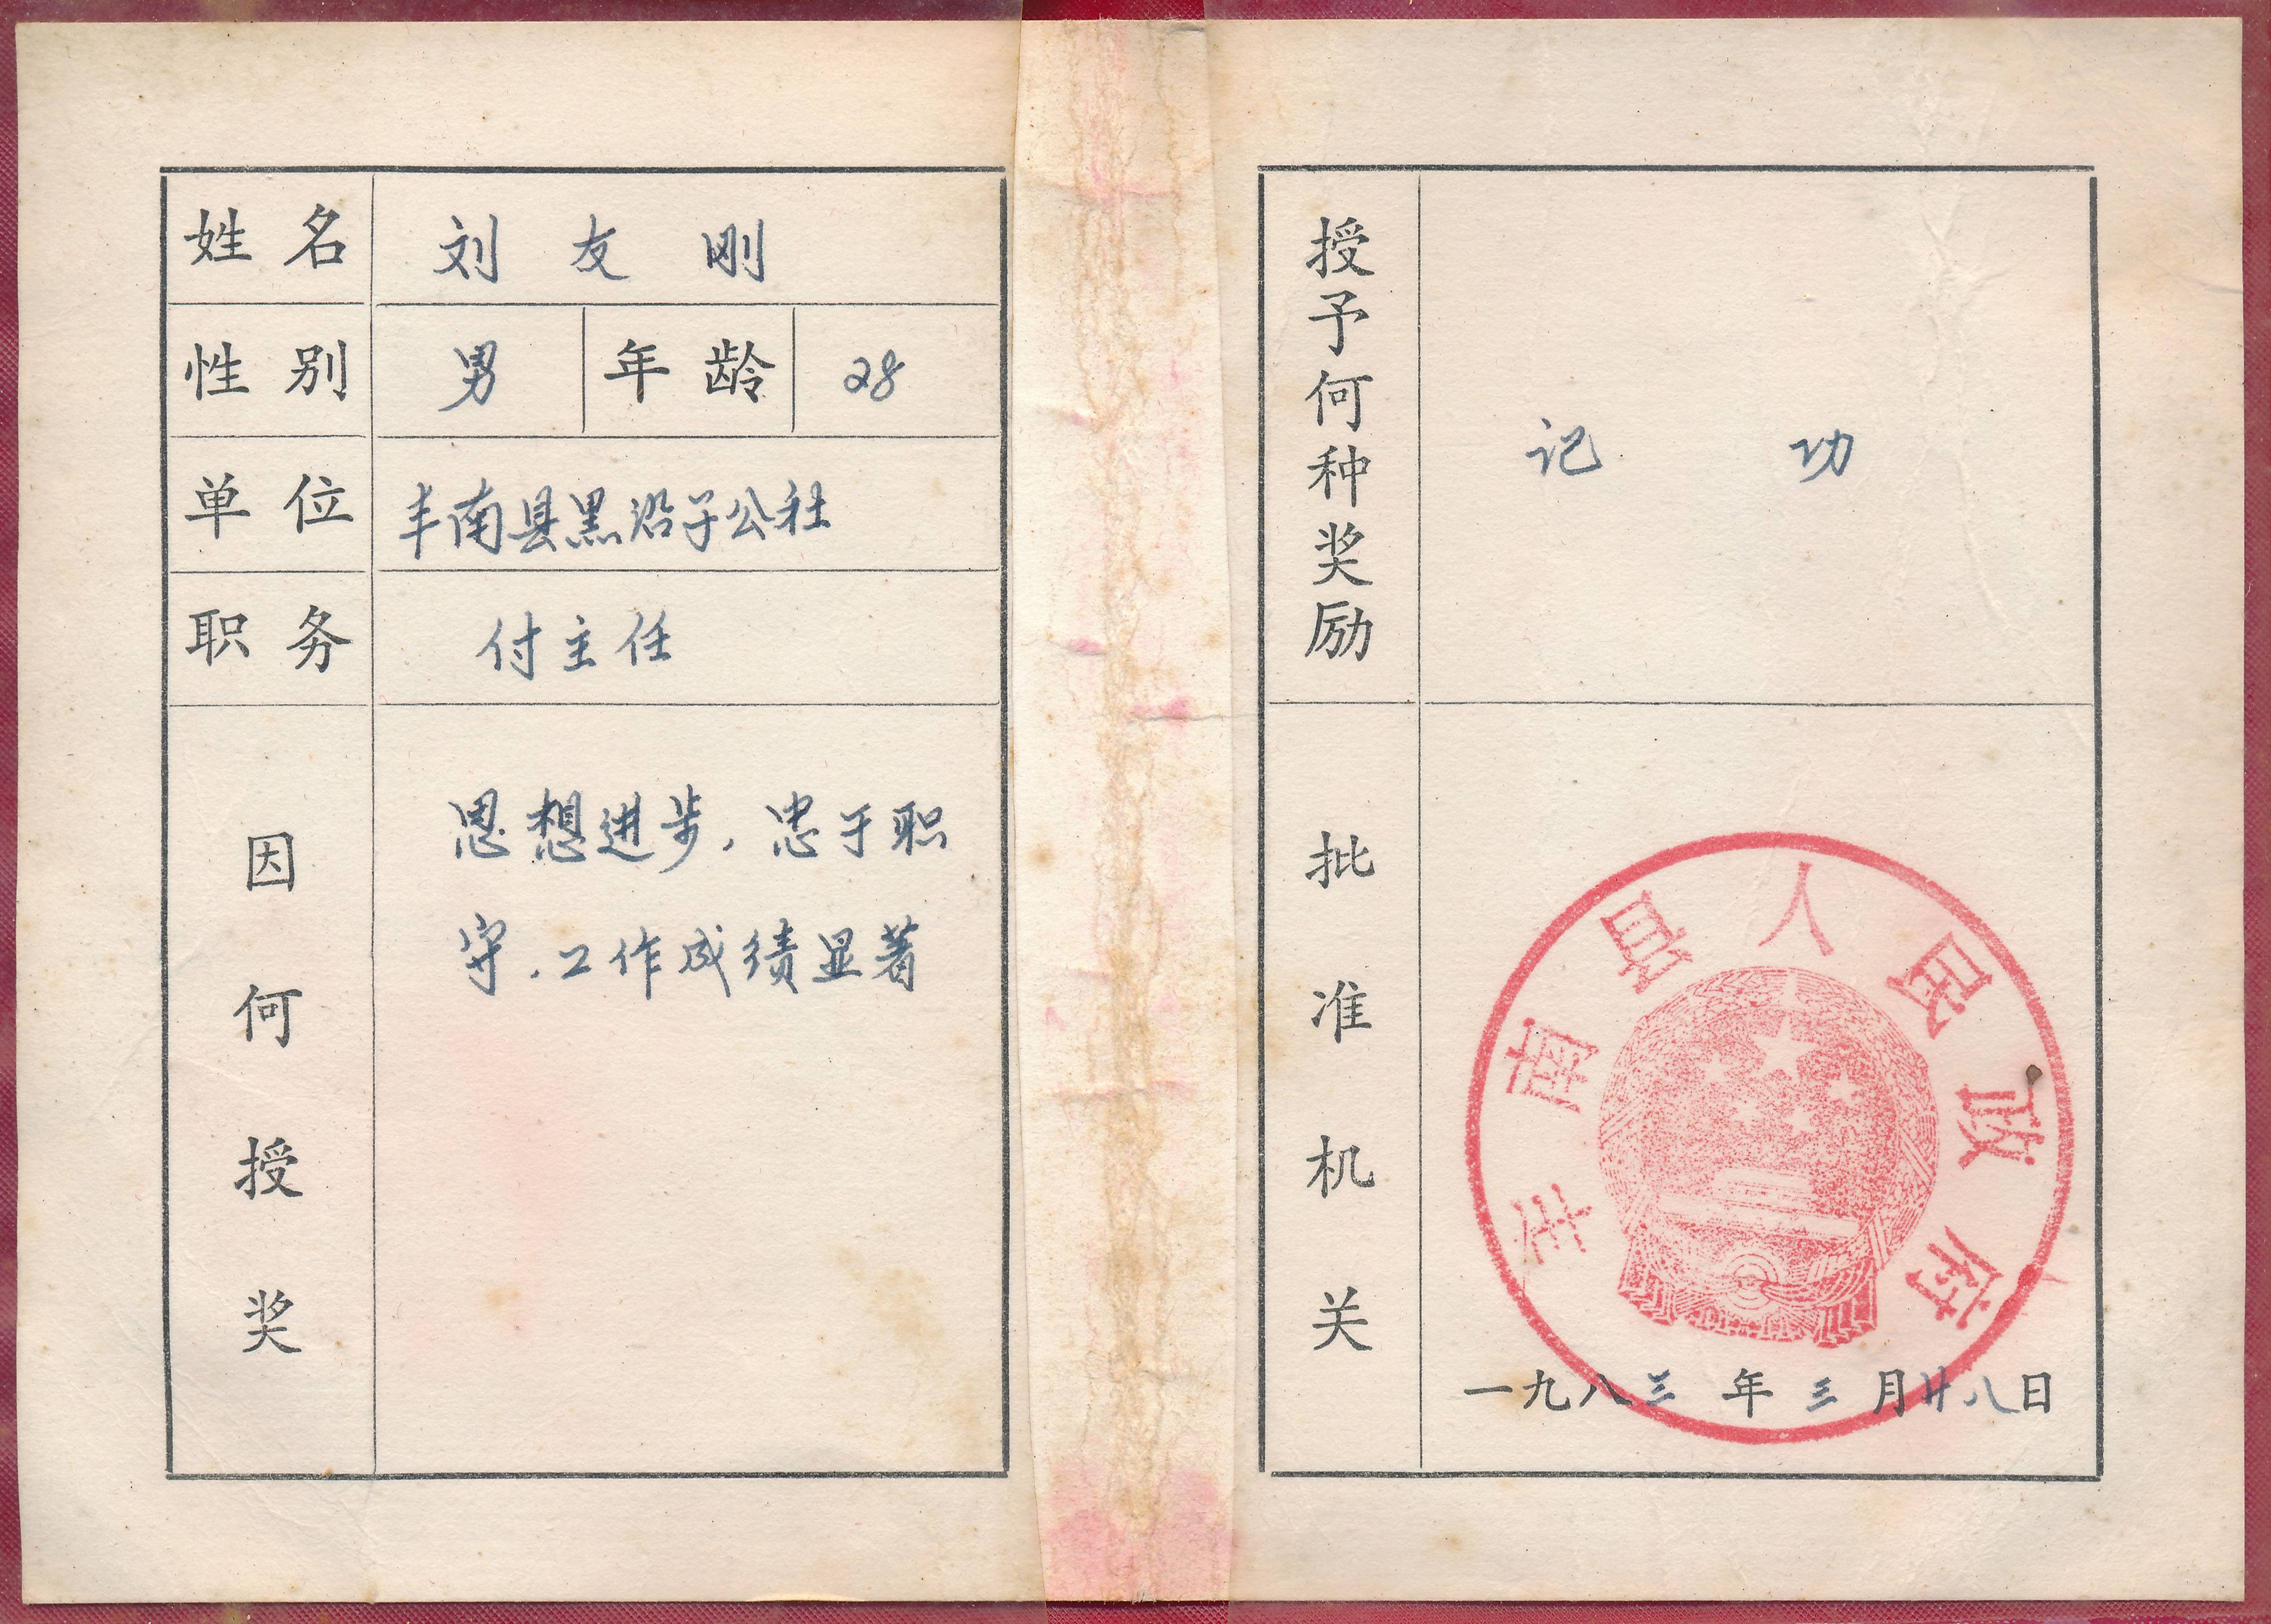 姓名 刘友刚
性别 男 年龄 28
单位 丰南县黑沿子公社
职务 付主任
因何授奖
思想进步，忠于职
守，工作成绩显著
授予何种奖励
记功
批准机关
丰南县人民政府
一九八三年三月廿八日